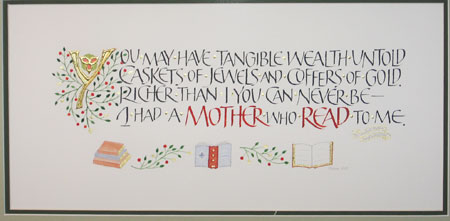 YOU·MAY·HAVE·TANGIBLE·WEALTH·UNTOLD
CASKETS·OF·JEWELS·AND·COFFERS·OF·GOLD.
RICHER·THAN·I·YOU·CAN·NEVER·BE—
I·HAD·A·MOTHER·WHO·READ·TO·ME.